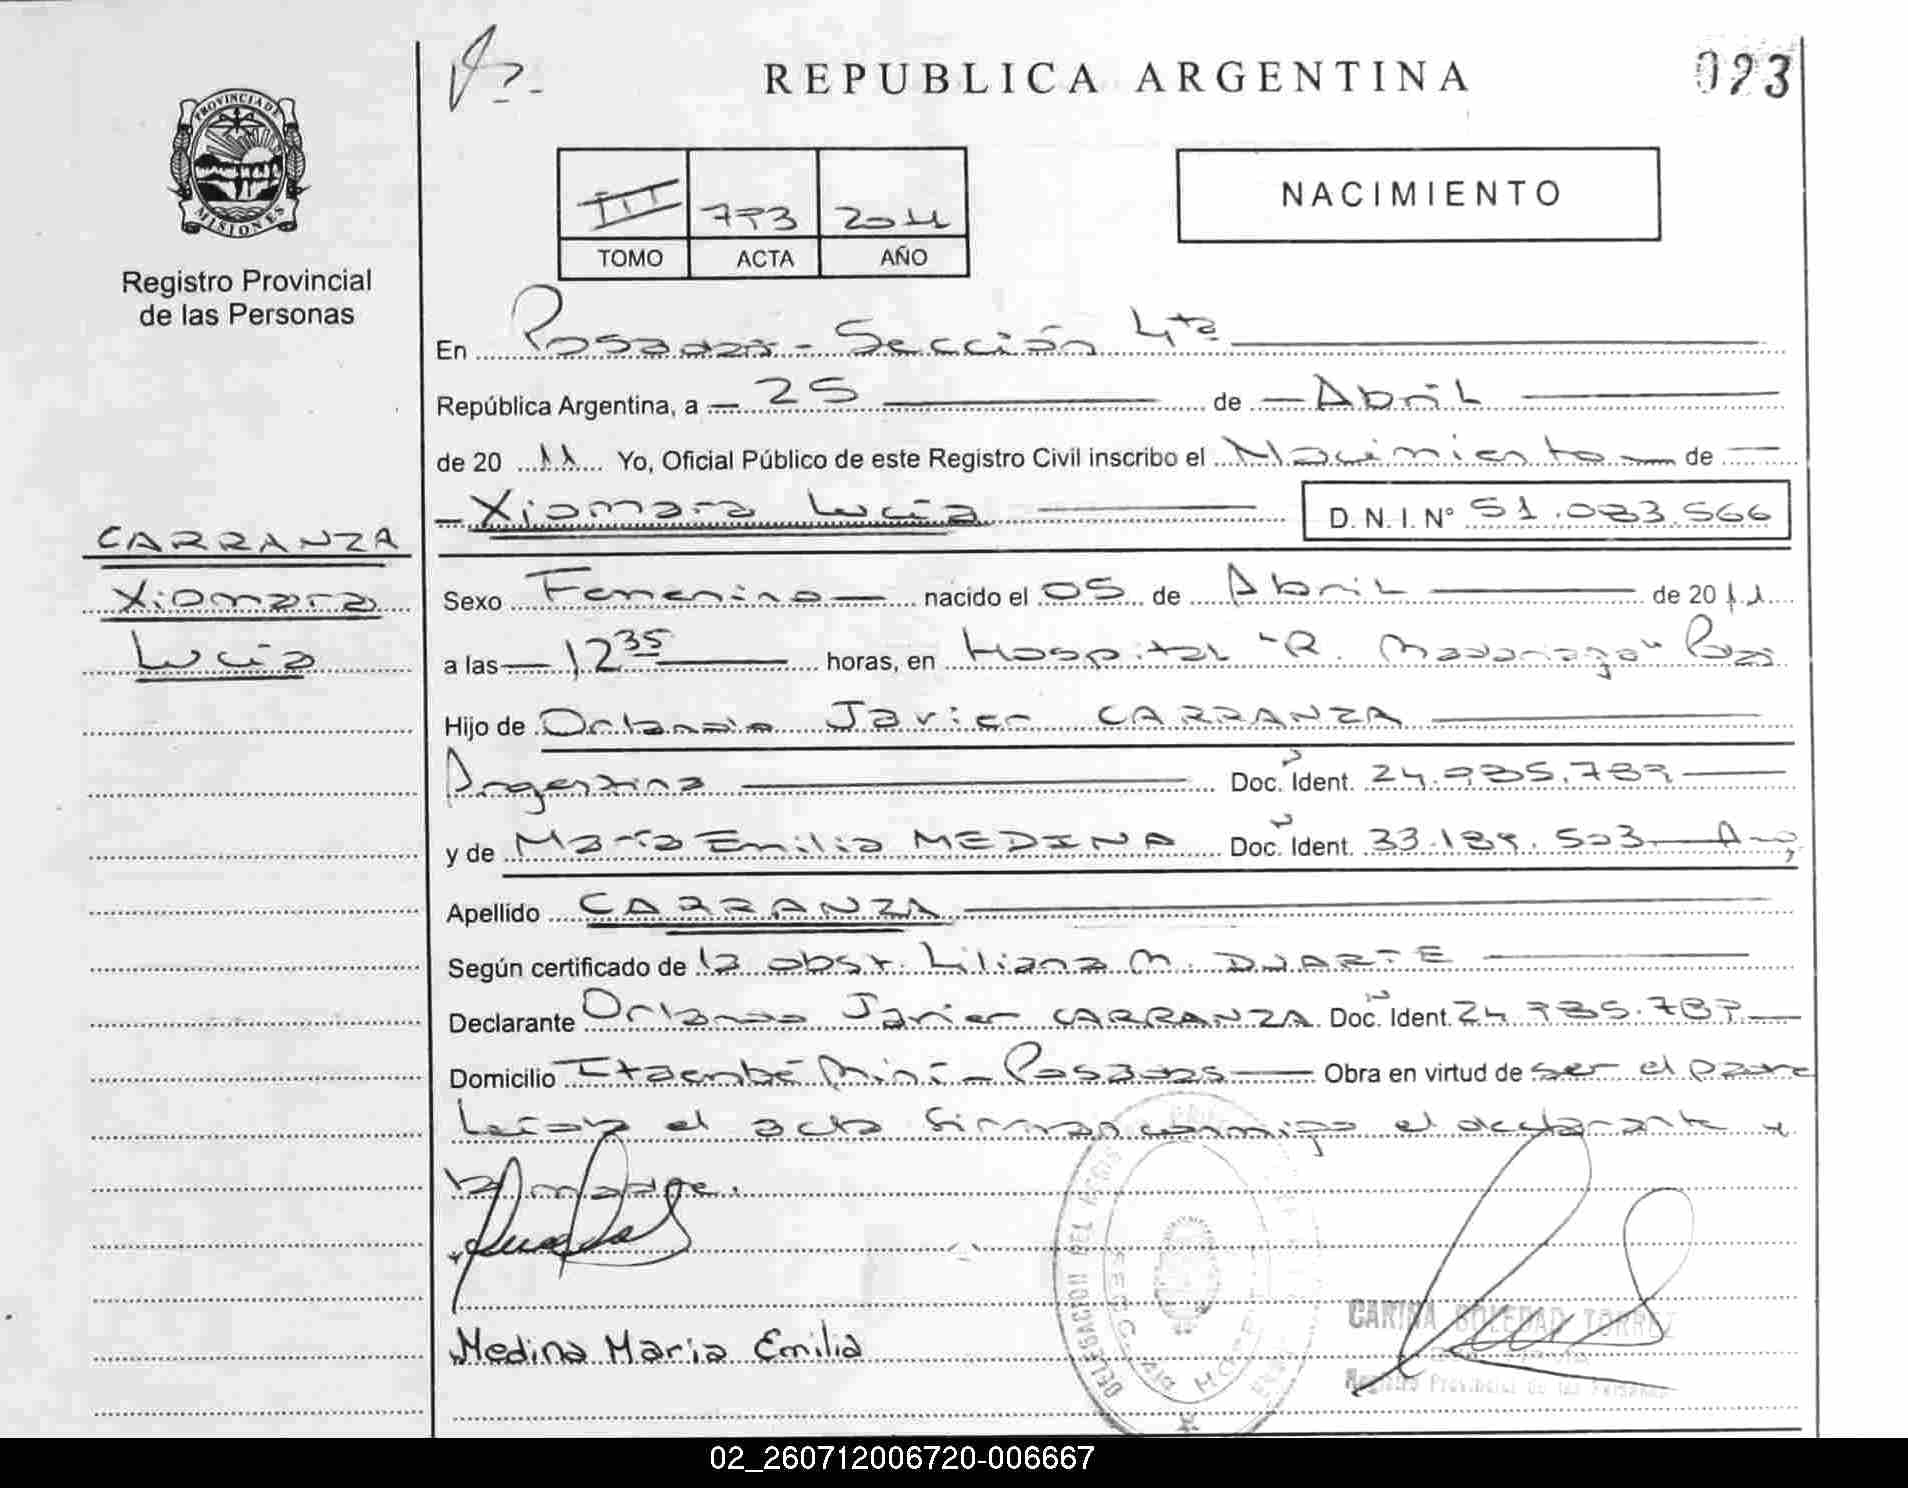 REPUBLICA ARGENTINA
093
PROVINCIA DE
MISIONES
Registro Provincial
de las Personas
III 793 2011
TOMO ACTA AÑO
NACIMIENTO
En Posadas - Sección 4ta
República Argentina, a 25 de Abril
de 20 11 Yo, Oficial Público de este Registro Civil inscribo el Nacimiento de
Xiomara Lucía D.N.I. Nº 51.083.566
CARRANZA
Xiomara
Lucía
Sexo Femenino nacido el 05 de Abril de 2011
a las 12 35 horas, en Hospital "R. Madariaga" Pdas
Hijo de Orlando Javier CARRANZA
Argentina Doc. Ident.
y de María Emilia MEDINA Doc. Ident. 33.189.503 Arg
Apellido CARRANZA
Según certificado de la obst. Liliana M. DUARTE
Declarante Orlando Javier CARRANZA Doc. Ident.
Domicilio Itaembé Miní - Posadas Obra en virtud de ser el padre
Leída el acta firman conmigo el declarante y
la madre.
Medina Maria Emilia
DELEGACION DEL REGIS
CARINA SOLEDAD TORREZ
Registro Provincial de las Personas
02_260712006720-006667